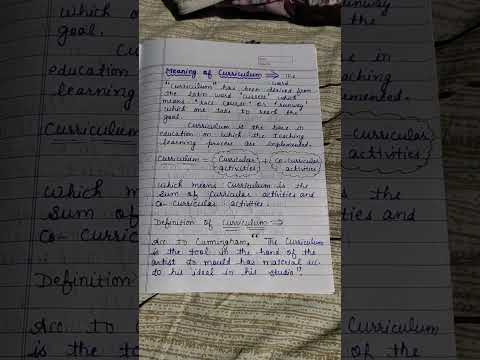 Meaning of Curriculum ⇒ The
word
"Curriculum" has been derived from
the latin word 'currere' which
means "race course" or 'runway'
which one take to reach the
goal.
Curriculum is the base in
education on which the teaching
learning process are implemented.
Curriculum = Curricular activities + co-curricular activities
Which means Curriculum is the
sum of Curricular activities and
co-curricular activities.
Definition of Curriculum ⇒
Acc to Cunningham, "The Curriculum
is the tool in the hand of the
artist to mould has material acc.
to his ideal in his studio"